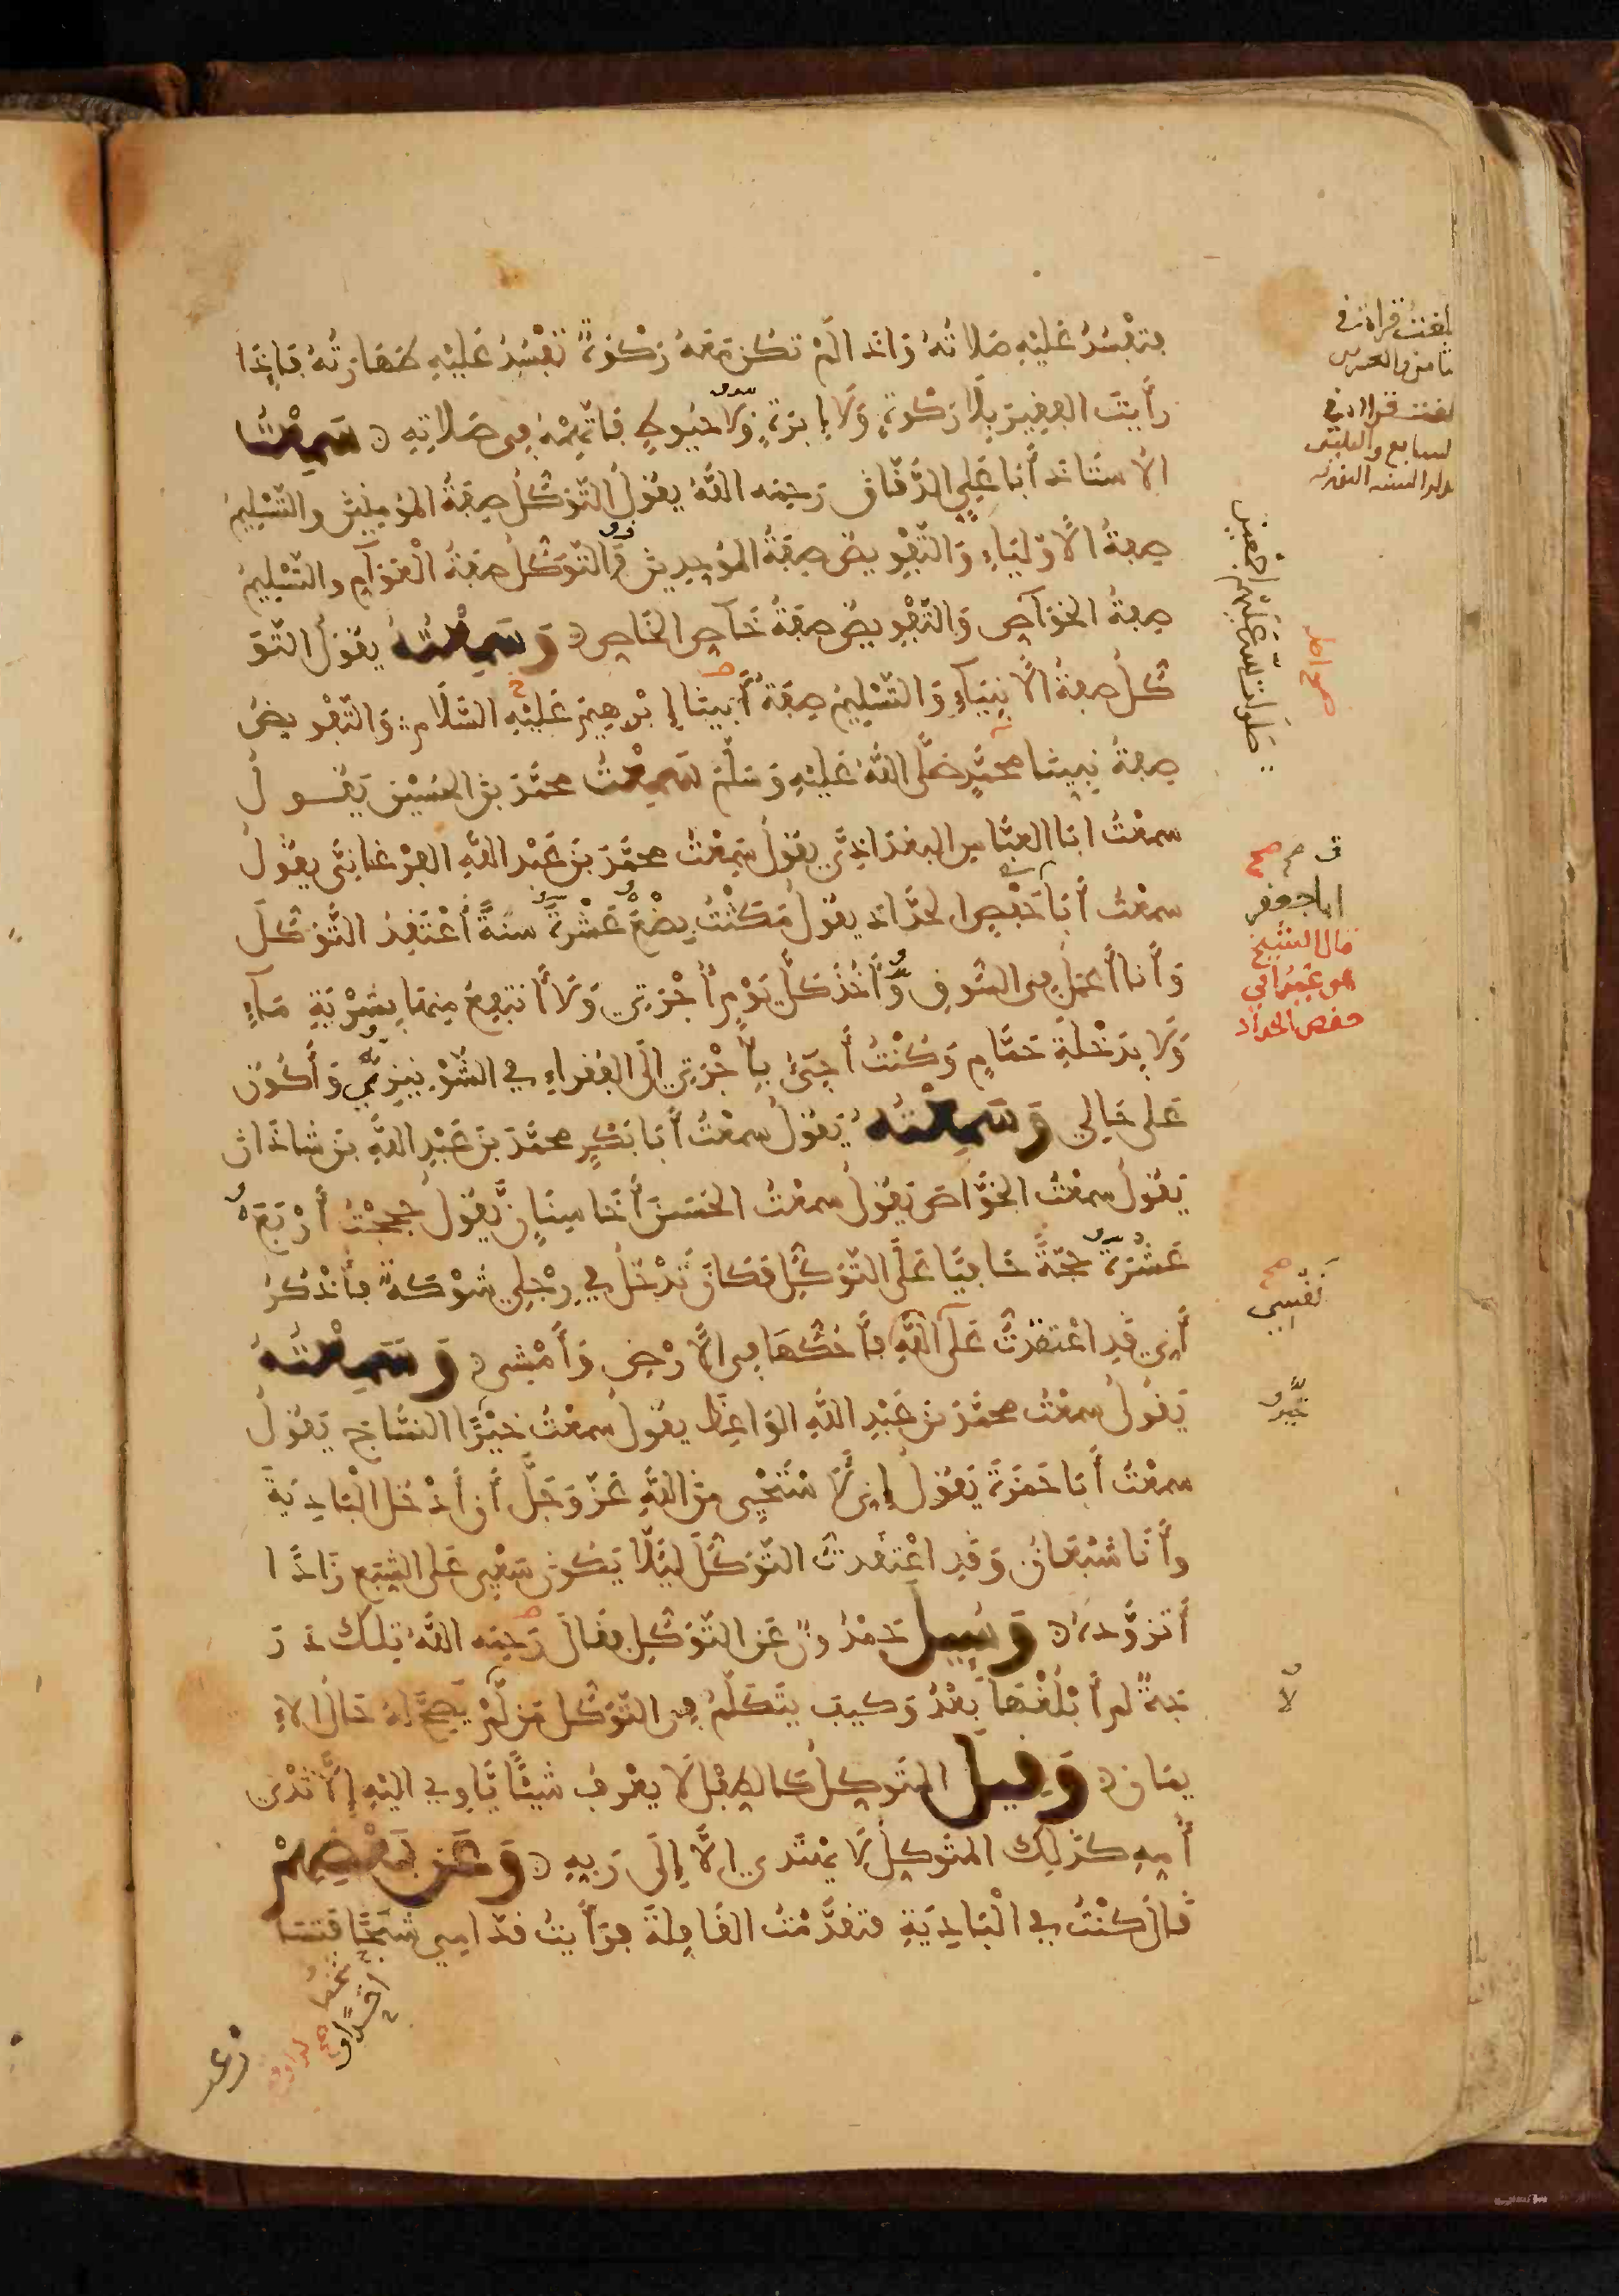 فتفسد عليه صلاته واذا لم تكن معه ركوة تفسد عليه طهارته فاذا
رأيت الفقير بلا ركوة ولا ابرة ولا خيوط فاتهمه في صلاته سمعت
الاستاذ أبا علي الدقاق رحمه الله يقول التوكل صفة المؤمنين والتسليم
صفة الأولياء والتفويض صفة الموحدين فالتوكل صفة العوام والتسليم
صفة الخواص والتفويض صفة خاص الخاص وسمعته يقول التو
كل صفة الأنبياء والتسليم صفة أبينا إبرهيم عليه السلام والتفويض
صفة نبينا محمد صلى الله عليه وسلم سمعت محمد بن الحسين يقول
سمعت ابا العباس البغداذي يقول سمعت محمد بن عبد الله الفرغاني يقول
سمعت أبا حفص الحداد يقول مكثت بضع عشرة سنة أعتقد التوكل
وأنا أعمل في السوق وآخذ كل يوم أجرتي ولا أنتفع منها بشربة ماء
ولا بدخلة حمام وكنت أجئ بأجرتي الى الفقراء في الشونيزي وأكون
على حالي وسمعته يقول سمعت أبا بكر محمد بن عبد الله بن شاذان
يقول سمعت الخواص يقول سمعت الحسن أخا سنان يقول حججت أربع
عشرة حجة حافيا على التوكل فكان تدخل في رجلي شوكة فأذكر
أني قد اعتقدت على الله فأحكها في الأرض وأمشي وسمعته
يقول سمعت محمد بن عبد الله الواعظ يقول سمعت خيرا النساج يقول
سمعت أبا حمزة يقول إني لأستحيي من الله عز وجل أن أدخل البادية
وأنا شبعان وقد اعتقدت التوكل ليلا يكون سعيي على الشبع زادا
أتزوده وسيل حمدون عن التوكل فقال رحمه الله تلك در
جة لم أبلغها بعد وكيف يتكلم في التوكل من لم يصح له حال الا
يمان وقيل المتوكل كالطفل لا يعرف شيئا يأوي اليه إلا ثدي
أمه كذلك المتوكل لا يهتدي الا إلى ربه وعن بعضهم
قال كنت في البادية فتقدمت القافلة فرأيت قدامي شخصا فتسا
بلغت قراءة في
ثامن والعشرين
بلغت قراءة في
صلوات الله عليهم اجمعين
صح اصل
صح
ابا جعفر
قال الشيخ
هو عمر ابي
حفص الحداد
صح
نفسي
خير
لا